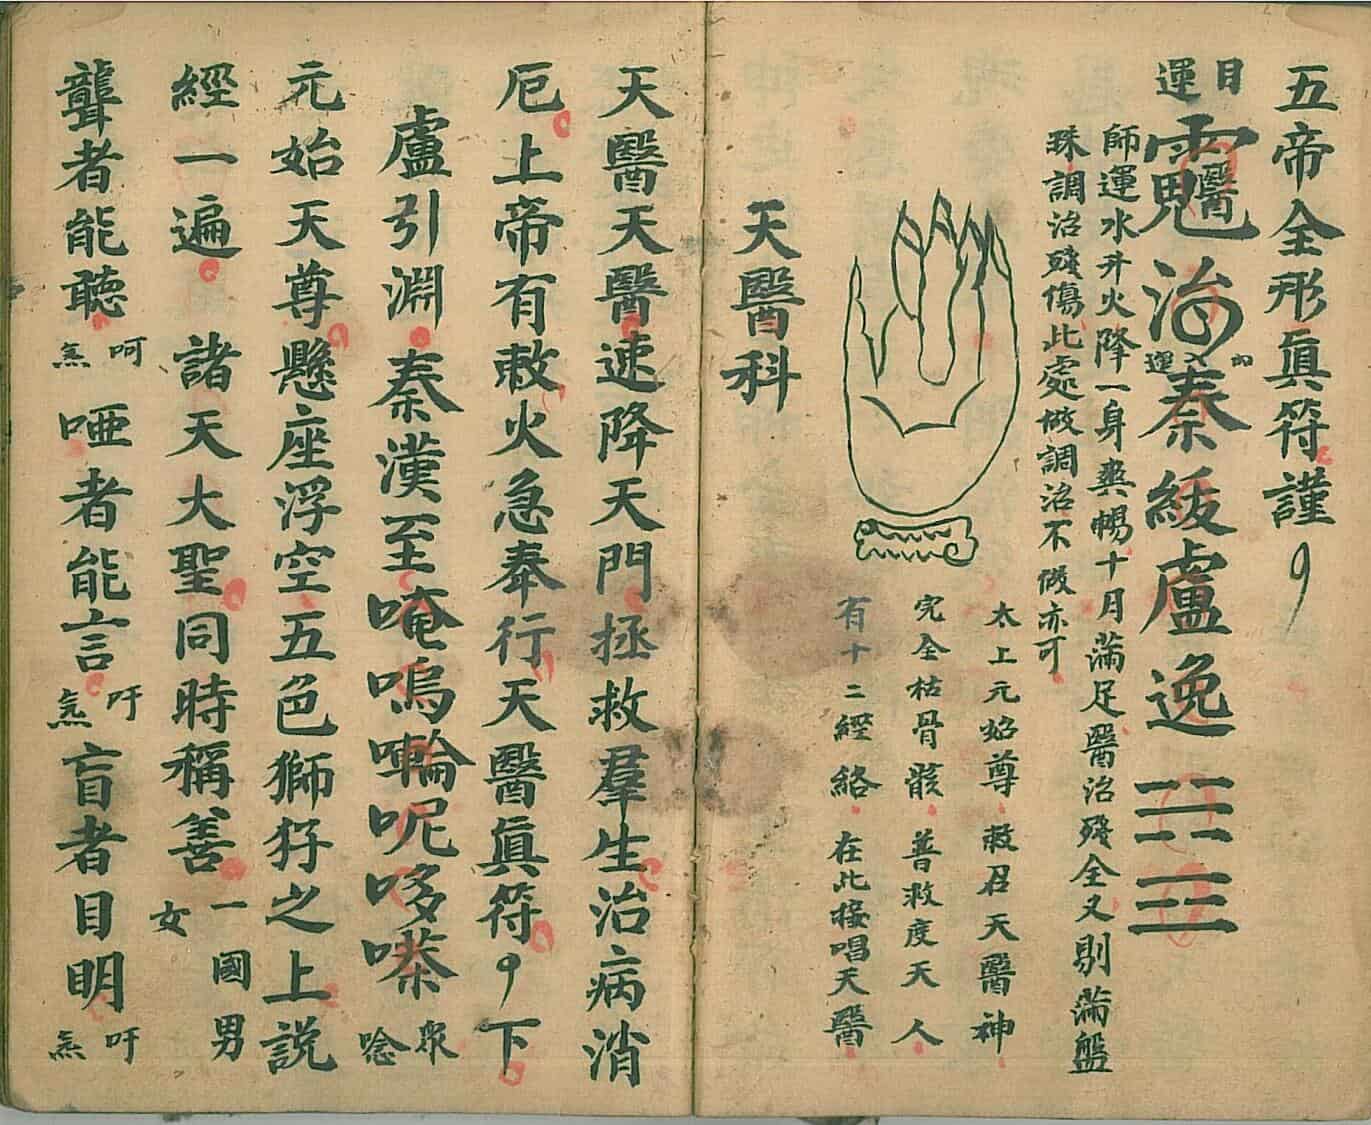 五帝全形眞符謹
目運
醫治秦緩盧逸
師運水升火降一身爽暢十月滿足醫治殘全又剔滿盤
珠調治殘傷此處做調治不做亦可
太上元始尊敕召天醫神
完全枯骨骸普救度天人
有十二經絡在此接唱天醫
天醫科
天醫天醫速降天門拯救羣生治病消
厄上帝有敕火急奉行天醫眞符下
盧引淵秦漢至唵嗚囀呢哆嗏衆唸
元始天尊懸座浮空五色獅犴之上説
經一遍諸天大聖同時稱善一國男女
聾者能聽呵炁啞者能言吁炁盲者目明吁炁